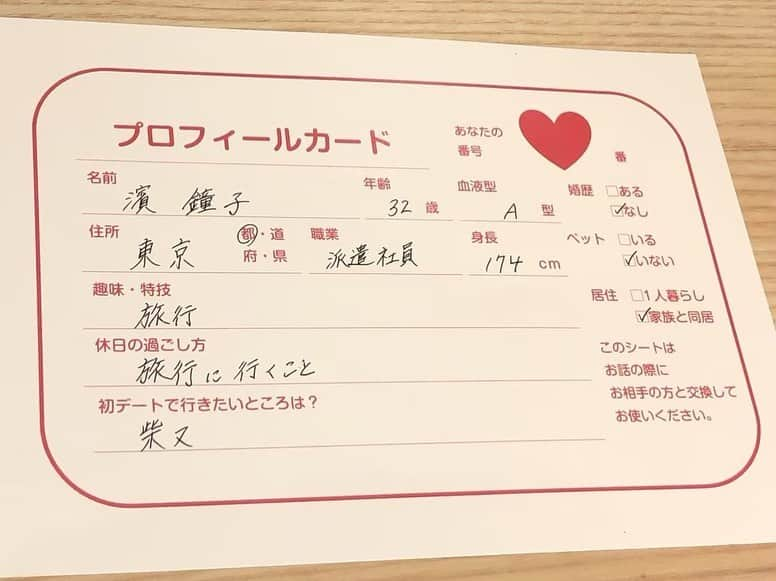 プロフィールカード
あなたの
番号
番
名前
濱 鐘子
年齢
32 歳
血液型
A 型
婚歴 □ある
☑なし
住所
東京
都・道
府・県
職業
派遣社員
身長
174 cm
ペット □いる
☑いない
趣味・特技
旅行
居住 □1人暮らし
☑家族と同居
休日の過ごし方
旅行に行くこと
初デートで行きたいところは？
柴又
このシートは
お話の際に
お相手の方と交換して
お使いください。